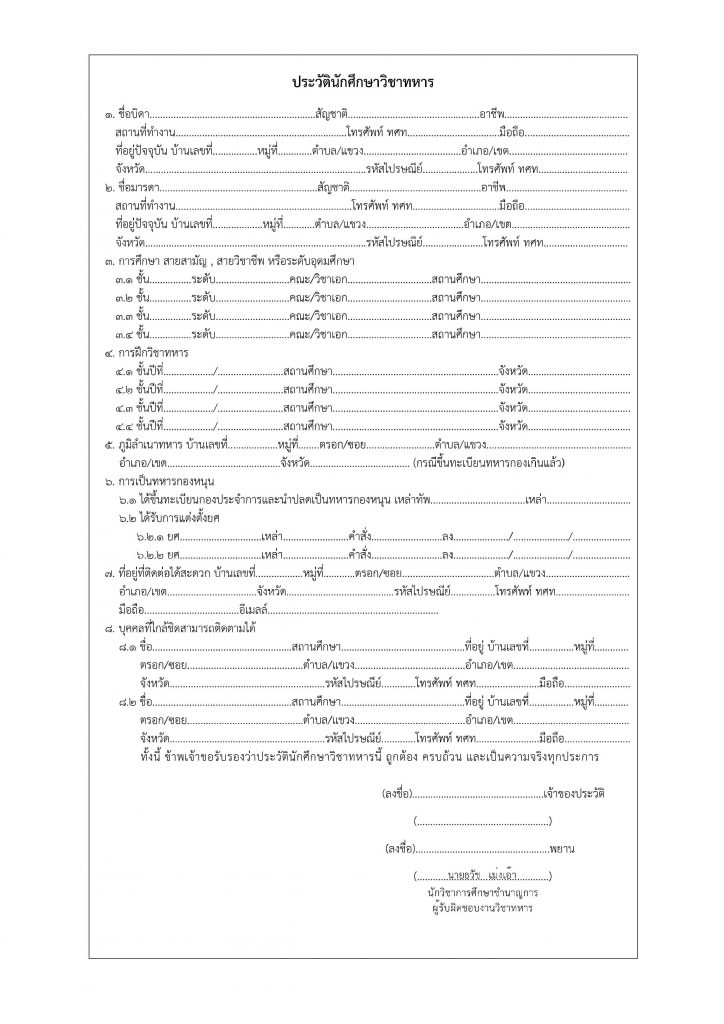 ประวัตินักศึกษาวิชาทหาร
๑. ชื่อบิดา............................................................สัญชาติ................................................อาชีพ.............................................
สถานที่ทำงาน..............................................................โทรศัพท์ ทศท.................................มือถือ......................................
ที่อยู่ปัจจุบัน บ้านเลขที่................หมู่ที่............ตำบล/แขวง...................................อำเภอ/เขต...........................................
จังหวัด................................................................................รหัสไปรษณีย์....................โทรศัพท์ ทศท................................
๒. ชื่อมารดา.........................................................สัญชาติ................................................อาชีพ............................................
สถานที่ทำงาน................................................................โทรศัพท์ ทศท................................มือถือ......................................
ที่อยู่ปัจจุบัน บ้านเลขที่..................หมู่ที่...........ตำบล/แขวง...................................อำเภอ/เขต...........................................
จังหวัด................................................................................รหัสไปรษณีย์......................โทรศัพท์ ทศท..............................
๓. การศึกษา สายสามัญ , สายวิชาชีพ หรือระดับอุดมศึกษา
๓.๑ ชั้น...............ระดับ...........................คณะ/วิชาเอก..............................สถานศึกษา......................................................
๓.๒ ชั้น...............ระดับ...........................คณะ/วิชาเอก..............................สถานศึกษา......................................................
๓.๓ ชั้น...............ระดับ...........................คณะ/วิชาเอก..............................สถานศึกษา......................................................
๓.๔ ชั้น...............ระดับ...........................คณะ/วิชาเอก..............................สถานศึกษา......................................................
๔. การฝึกวิชาทหาร
๔.๑ ชั้นปีที่................../........................สถานศึกษา............................................................จังหวัด.....................................
๔.๒ ชั้นปีที่................../........................สถานศึกษา............................................................จังหวัด.....................................
๔.๓ ชั้นปีที่................../........................สถานศึกษา............................................................จังหวัด.....................................
๔.๔ ชั้นปีที่................../........................สถานศึกษา............................................................จังหวัด.....................................
๕. ภูมิลำเนาทหาร บ้านเลขที่..................หมู่ที่.......ตรอก/ซอย.........................ตำบล/แขวง....................................................
อำเภอ/เขต.........................................จังหวัด.................................... (กรณีขึ้นทะเบียนทหารกองเกินแล้ว)
๖. การเป็นทหารกองหนุน
๖.๑ ได้ขึ้นทะเบียนกองประจำการและนำปลดเป็นทหารกองหนุน เหล่าทัพ..................................เหล่า..............................
๖.๒ ได้รับการแต่งตั้งยศ
๖.๒.๑ ยศ..............................เหล่า........................คำสั่ง.........................ลง..................../...................../.....................
๖.๒.๒ ยศ..............................เหล่า........................คำสั่ง.........................ลง..................../...................../.....................
๗. ที่อยู่ที่ติดต่อได้สะดวก บ้านเลขที่.................หมู่ที่...........ตรอก/ซอย.................................ตำบล/แขวง..............................
อำเภอ/เขต................................จังหวัด.......................................รหัสไปรษณีย์................โทรศัพท์ ทศท...........................
มือถือ..................................อีเมลล์..............................................................
๘. บุคคลที่ใกล้ชิดสามารถติดตามได้
๘.๑ ชื่อ..................................................สถานศึกษา............................................ที่อยู่ บ้านเลขที่................หมู่ที่............
ตรอก/ซอย..........................................ตำบล/แขวง........................................อำเภอ/เขต..........................................
จังหวัด........................................................รหัสไปรษณีย์............โทรศัพท์ ทศท.......................มือถือ.......................
๘.๒ ชื่อ..................................................สถานศึกษา............................................ที่อยู่ บ้านเลขที่................หมู่ที่............
ตรอก/ซอย..........................................ตำบล/แขวง........................................อำเภอ/เขต..........................................
จังหวัด........................................................รหัสไปรษณีย์............โทรศัพท์ ทศท.......................มือถือ.......................
ทั้งนี้ ข้าพเจ้าขอรับรองว่าประวัตินักศึกษาวิชาทหารนี้ ถูกต้อง ครบถ้วน และเป็นความจริงทุกประการ
(ลงชื่อ)................................................เจ้าของประวัติ
(................................................)
(ลงชื่อ).................................................พยาน
(...........นายธวัช เม่งเอ๊า............)
นักวิชาการศึกษาชำนาญการ
ผู้รับผิดชอบงานวิชาทหาร